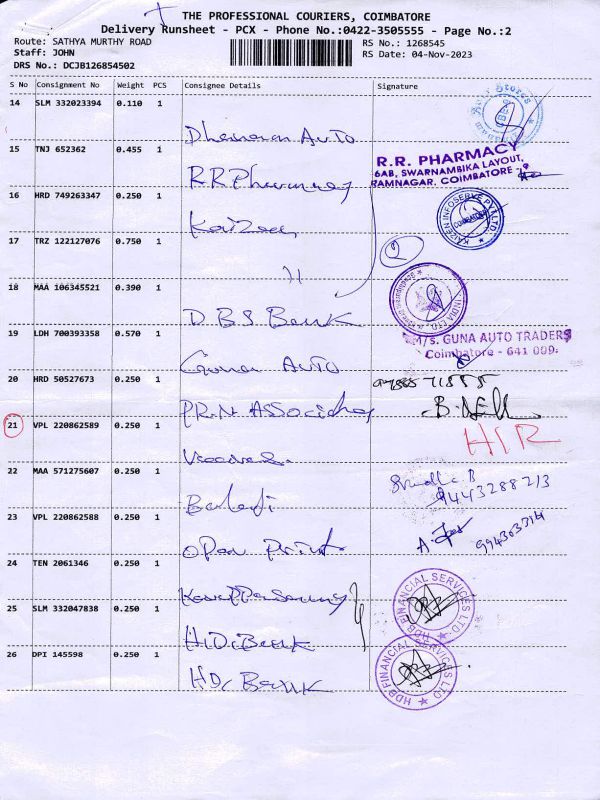 THE PROFESSIONAL COURIERS, COIMBATORE
Delivery Runsheet - PCX - Phone No.:0422-3505555 - Page No.:2
Route: SATHYA MURTHY ROAD
RS No.: 1268545
Staff: JOHN
RS Date: 04-Nov-2023
DRS No.: DCJB126854502
S No Consignment No Weight PCS Consignee Details Signature
14 SLM 332023394 0.110 1
Dhanaran Auto
15 TNJ 652362 0.455 1
R.R. PHARMACY
6AB, SWARNAMBIKA LAYOUT,
RAMNAGAR, COIMBATORE - 9
RR Pharmacy
16 HRD 749263347 0.250 1
Kaizen
KAIZEN INFOSERVE PVT LTD
COIMBATORE
17 TRZ 122127076 0.750 1
11
2
18 MAA 106345521 0.390 1
DBS Bank
INDIA LTD
19 LDH 700393358 0.570 1
M/S. GUNA AUTO TRADERS
Coimbatore - 641 009.
Guna AUTO
20 HRD 50527673 0.250 1
PRN Associates
21 VPL 220862589 0.250 1
HIR
22 MAA 571275607 0.250 1
Balaji
9443288213
23 VPL 220862588 0.250 1
Open Print
24 TEN 2061346 0.250 1
25 SLM 332047838 0.250 1
HDB FINANCIAL SERVICES LTD.
HDc Bank
26 DPI 145598 0.250 1
HDB FINANCIAL SERVICES LTD
HDc Bank